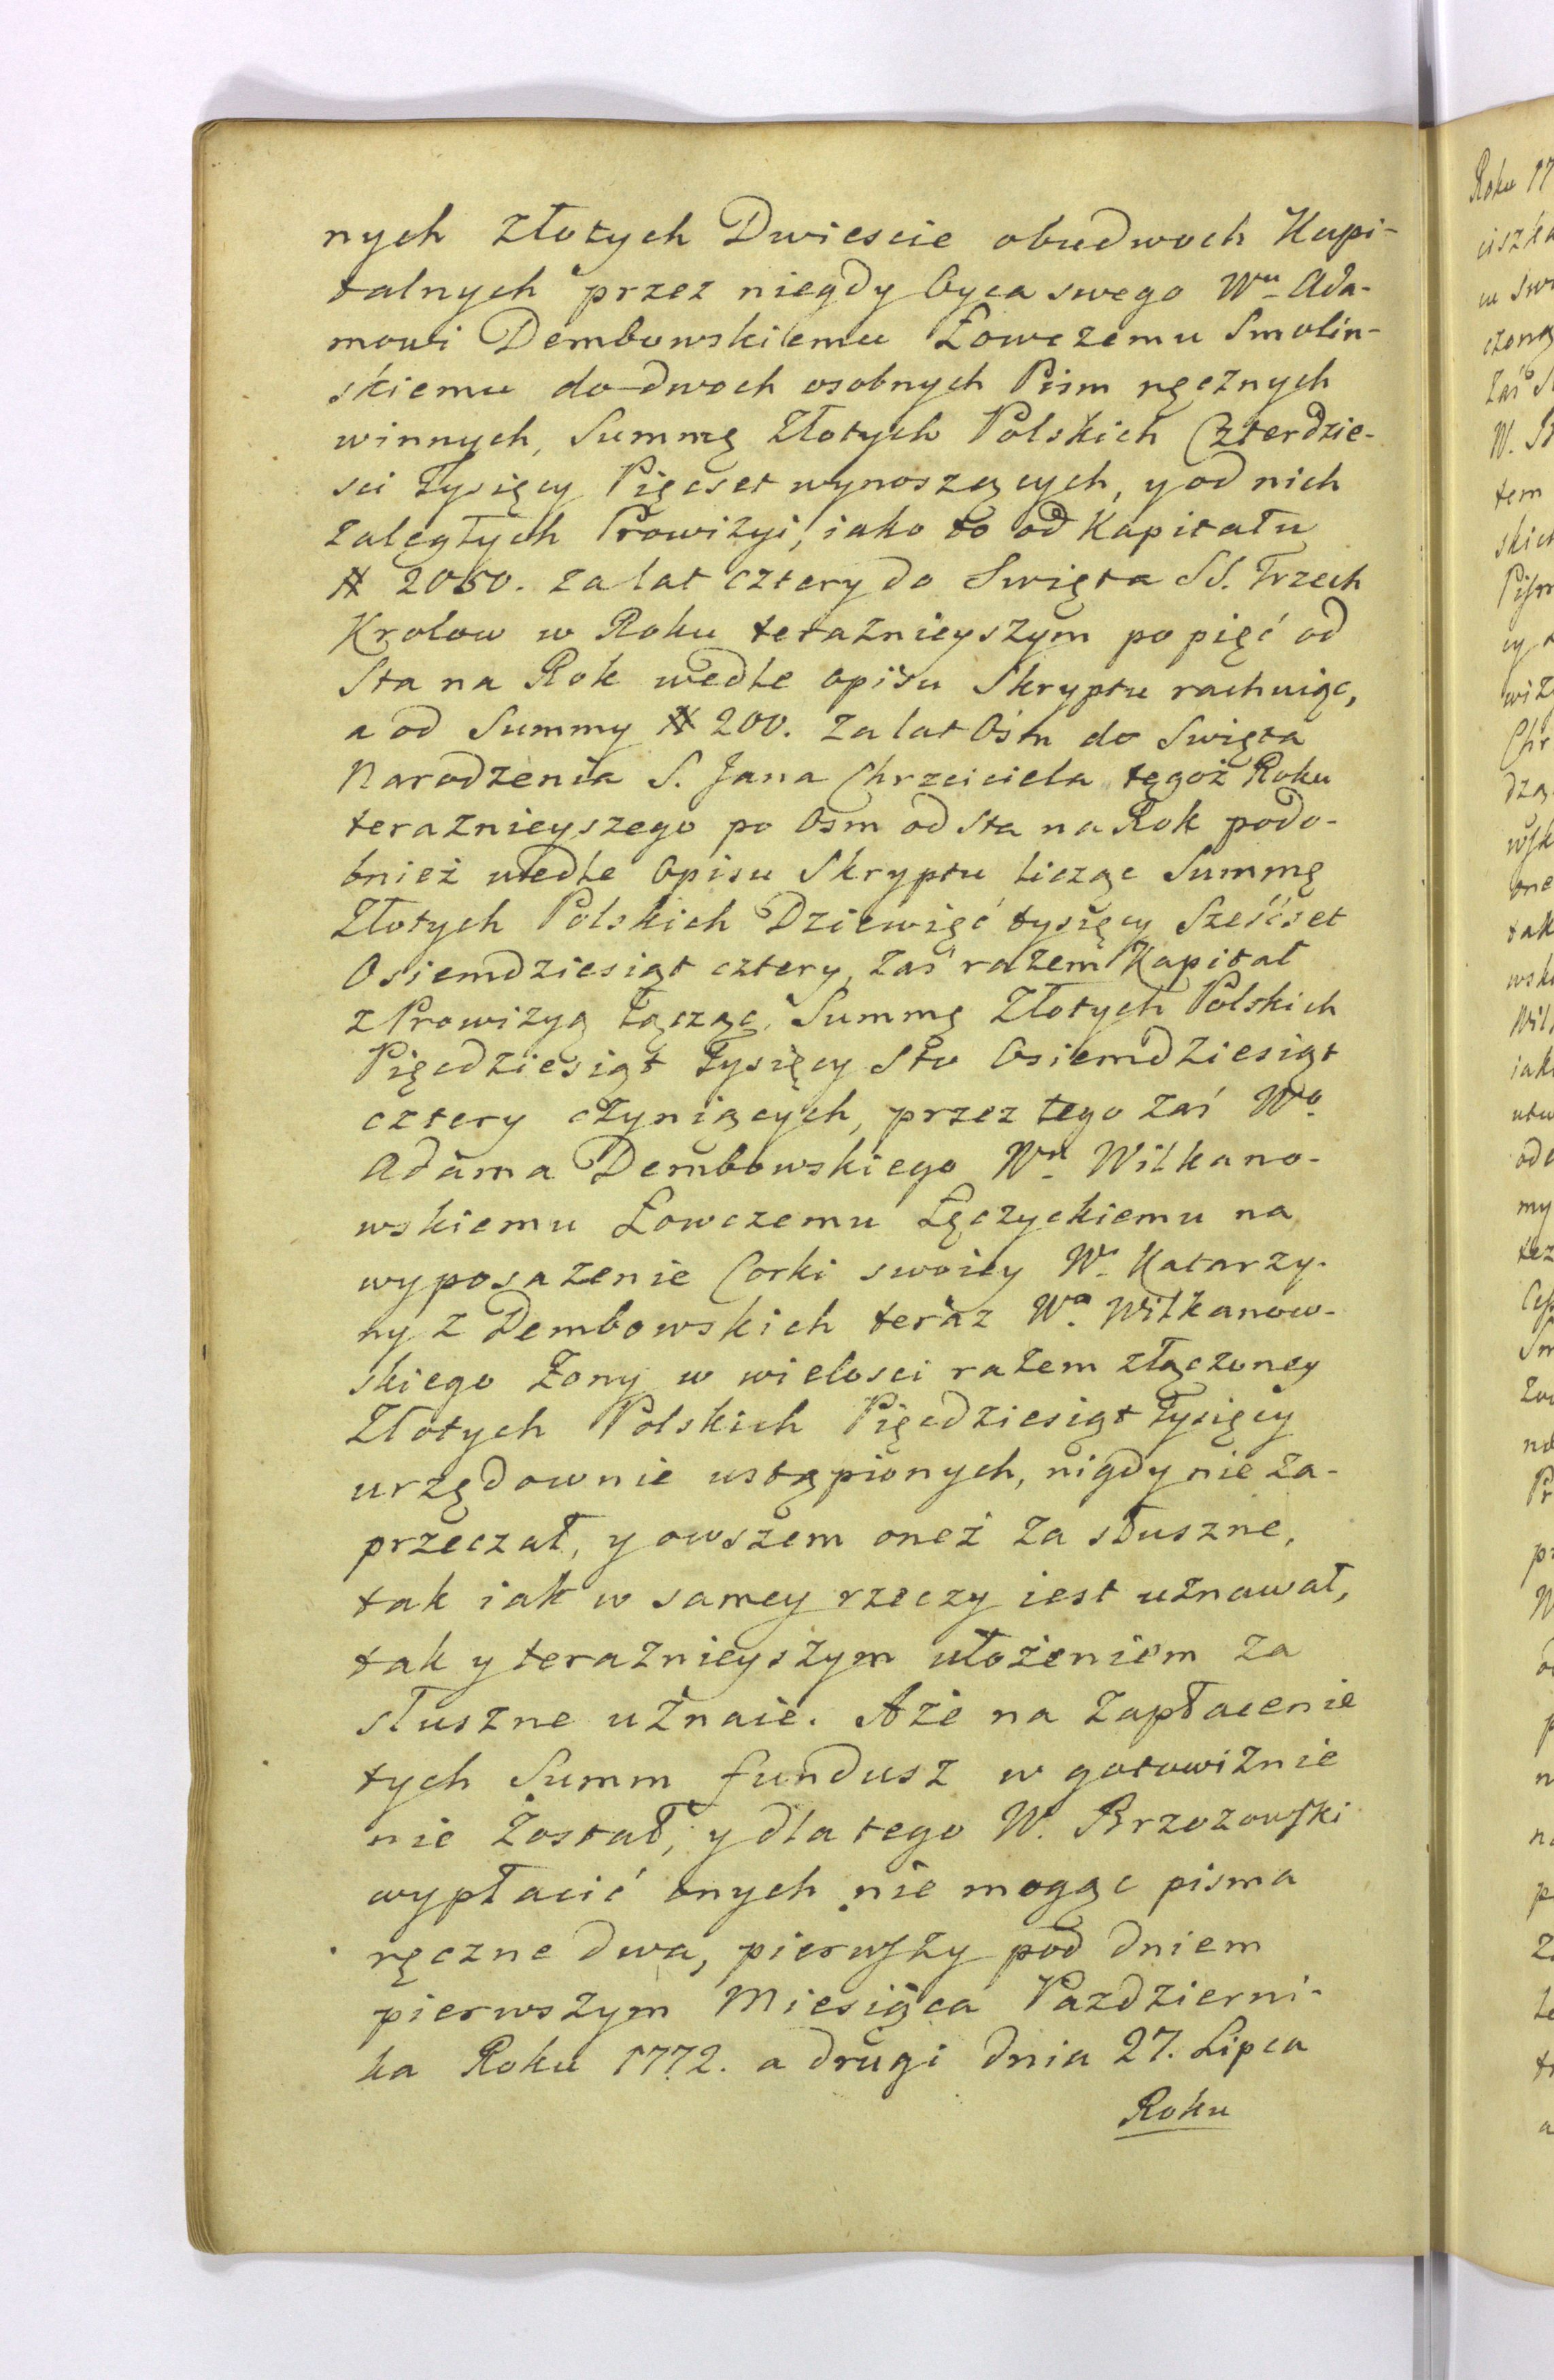 nych Złotych Dwiescie obudwoch Kapi-
talnych przez niegdy Oyca swego Wu Ada-
mowi Dembowskiemu Łowczemu Smolin-
skiemu do dwoch osobnych Pism ręcznych
winnych, Summę Złotych Polskich Czterdzie-
sci Tysięcy Pięcset wynoszących, y od nich
zaległych Prowizyi, iako to od Kapitału
# 2050. za lat cztery do Swięta SS. Trzech
Krolow w Roku teraznieyszym po pięć od
Sta na Rok wedle opisu Skryptu rachuiąc,
a od Summy # 200. za lat Osm do Swięta
Narodzenia S. Jana Chrzciciela tegoż Roku
teraznieyszego po Osm od Sta na Rok podo-
bnież wedle Opisu Skryptu licząc Summę
Złotych Polskich Dziewięć tysięcy Sześćset
Osiemdziesiąt cztery, zaś razem Kapitał
z Prowizyą łącząc, Summę Złotych Polskich
Pięcdziesiąt Tysięcy Sto Osiemdziesiąt
cztery czyniących, przez tego zaś Wo
Adama Dembowskiego Wu Wilkano-
wskiemu Łowczemu Łęczyckiemu na
wyposazenie Corki swoiey W. Katarzy-
ny z Dembowskich teraz Wo Wilkanow-
skiego Zony w wielosci razem złączoney
Złotych Polskich Pięcdziesiąt Tysięcy
urzędownie ustąpionych, nigdy nie za-
przeczał, y owszem oneż za słuszne,
tak iak w samey rzeczy iest uznawał,
tak y teraznieyszym ułożeniem za
słuszne uznaie. Aże na zapłacenie
tych Summ fundusz w gotowiznie
nie został, y dla tego W. Brzozowski
wypłacić onych nie mogąc pisma
ręczne dwa, pierwszy pod dniem
pierwszym Miesiąca Pazdzierni-
ka Roku 1772. a drugi dnia 27. Lipca
Roku